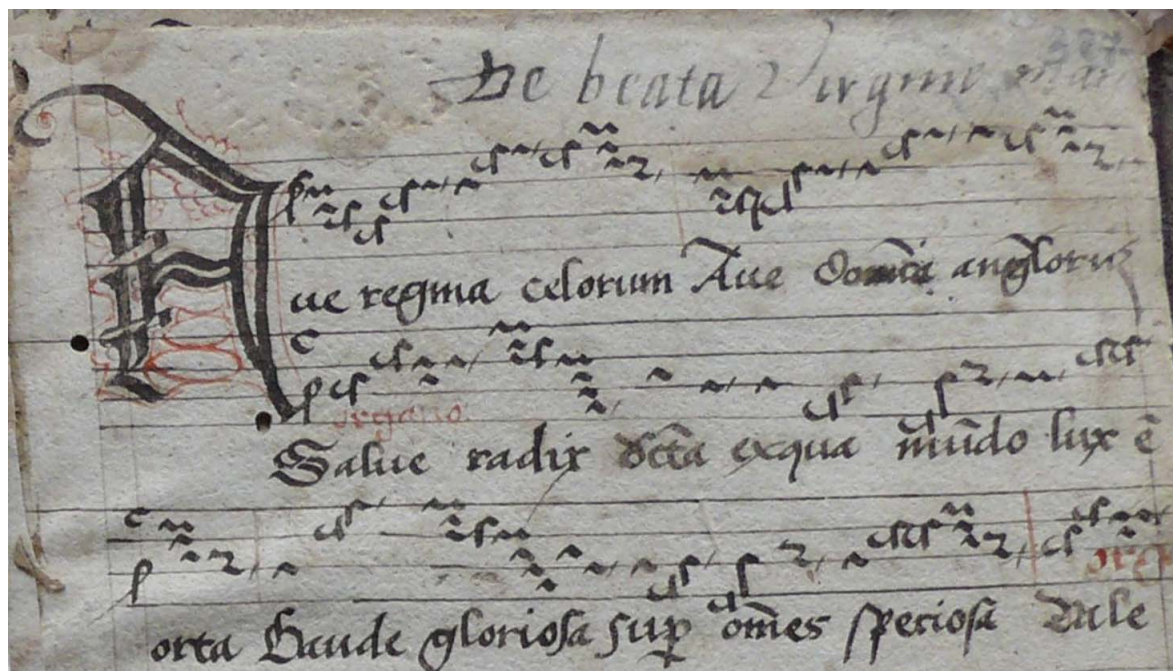 De beata Virgine mari
387
Aue regina celorum Aue domīa angeloruz
organo
Salue radix sctā ex qua mūdo lux ē
orta Gaude gloriosa sup om̄es speciosa Vale
org